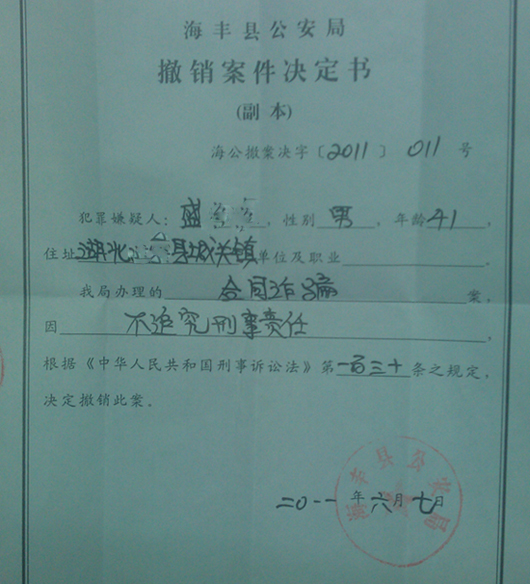 海丰县公安局
撤销案件决定书
(副本)
海公撤案决字〔2011〕011号
犯罪嫌疑人:盛,性别男,年龄41,
住址湖北县城关镇单位及职业。
我局办理的合同诈骗案,
因不追究刑事责任,
根据《中华人民共和国刑事诉讼法》第一百三十条之规定,
决定撤销此案。
海丰县公安局
二〇一一年六月七日